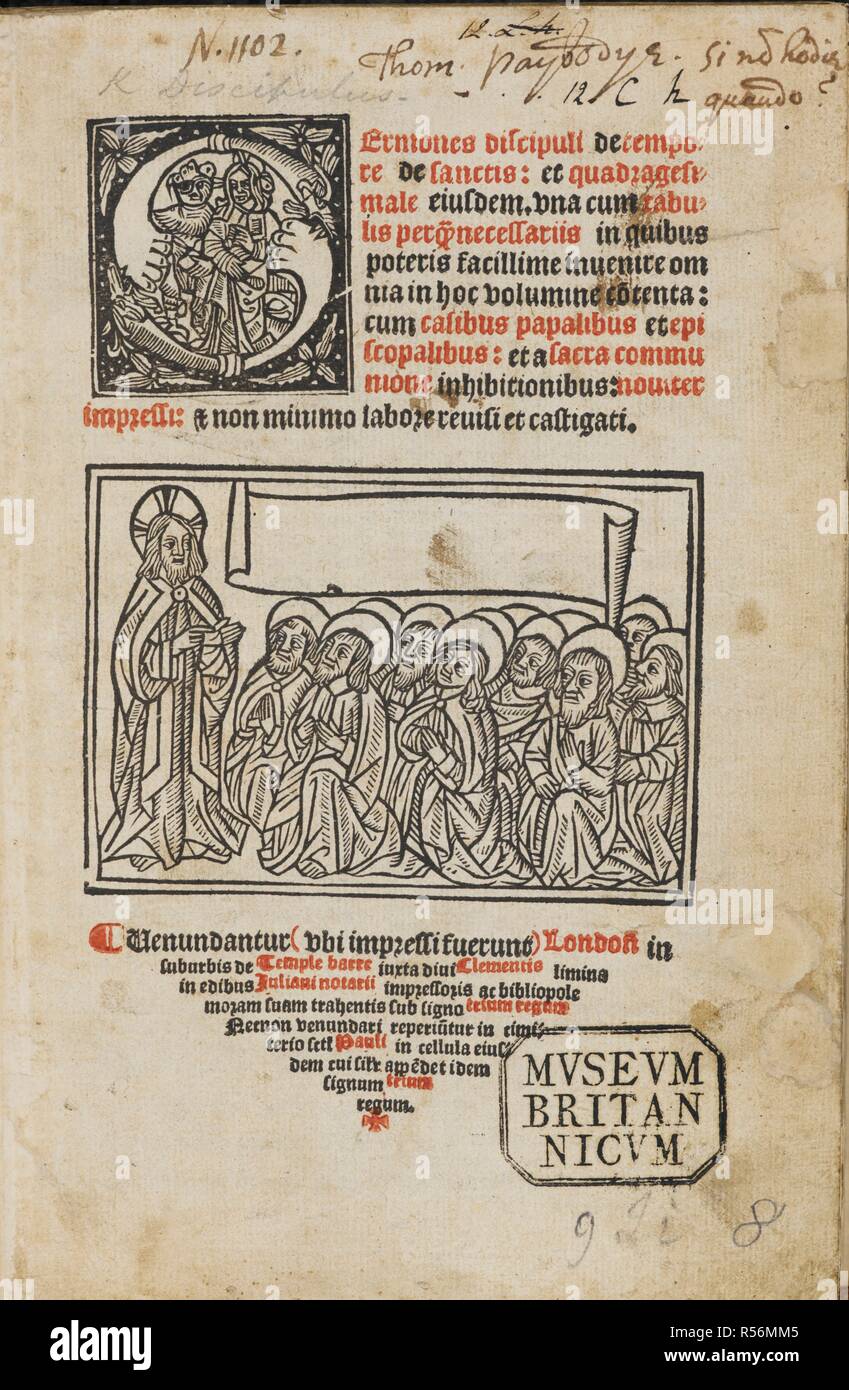 N. 1102.
12. L. h.
Thom. paybodye. Si nō hodie
12. C h quando?
K Discipulus.
SErmones discipuli de tempo-
re de sanctis: et quadragesi-
male eiusdem. vna cum tabu-
lis perq̄necessariis in quibus
poteris facillime inuenire om
nia in hoc volumine cōtenta:
cum casibus papalibus et epi
scopalibus: et a sacra commu
nione inhibitionibus: nouiter
impressi: & non minimo labore reuisi et castigati.
Uenundantur (vbi impressi fuerunt) Londoñ in
suburbis de Temple barre iuxta diui Clementis limina
in edibus Iuliani notarii impressoris ac bibliopole
moram suam trahentis sub signo trium regum
Necnon venundari reperiūtur in cimi-
terio scti Pauli in cellula eius-
dem cui silr appēdet idem
signum trium
regum.
MVSEVM
BRITAN
NICVM
8
alamy
Image ID: R56MM5
www.alamy.com